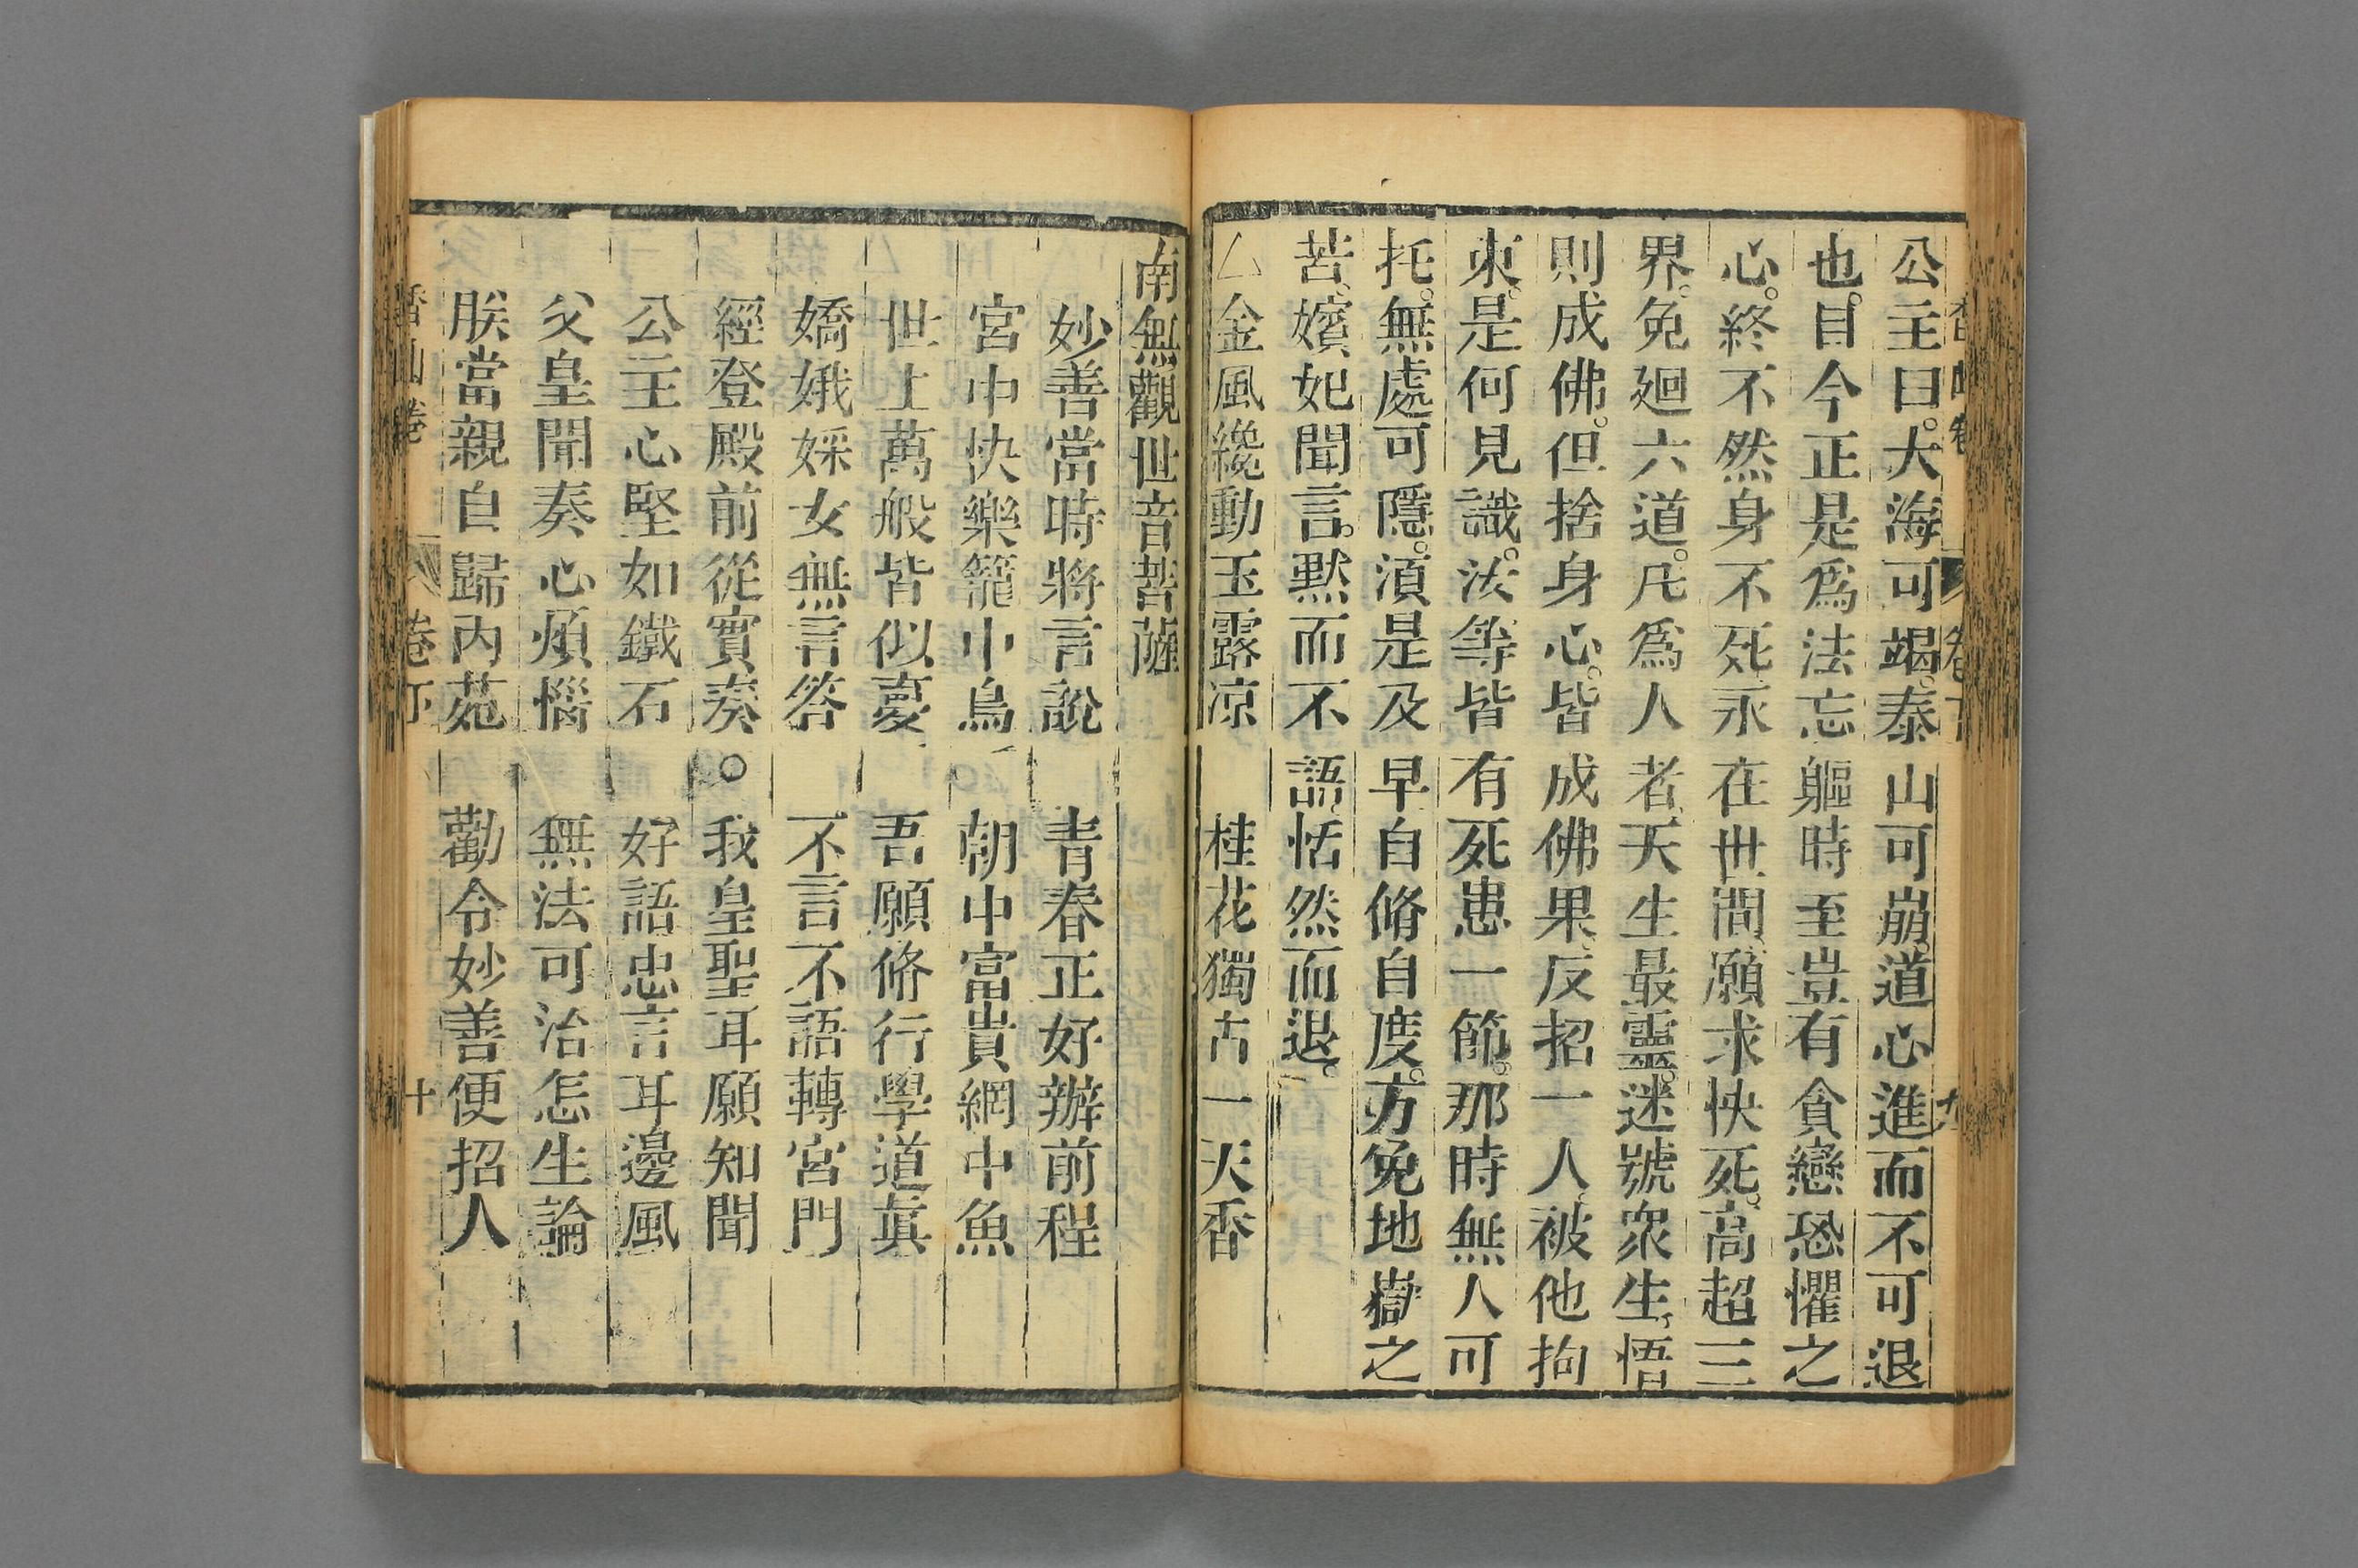 公主曰。大海可竭。泰山可崩。道心進而不可退
也。目今正是爲法忘軀時至豈有貪戀恐懼之
心。終不然身不死永在世間、願求快死。高超三
界。免廻六道。凡爲人者、天生最靈。迷號衆生、悟
則成佛。但捨身心。皆成佛果、反招一人、被他拘
束。是何見識。汝等皆有死患一節。那時無人可
托。無處可隱。湏是及早自脩自度。方免地嶽之
苦、嬪妃聞言。黙而不語、恬然而退。
△金風纔動玉露凉　桂花獨占一天香
南無觀世音菩薩
妙善當時將言說　青春正好辦前程
宮中快樂籠中鳥　朝中富貴網中魚
世上萬般皆似憂　吾願脩行學道眞
嬌娥婇女無言答　不言不語轉宮門
經登殿前從實奏。我皇聖耳願知聞
公主心堅如鐵石　好語忠言耳邊風
父皇聞奏心煩惱　無法可治怎生論
朕當親自歸內苑　勸令妙善便招人
香山卷　卷下　十